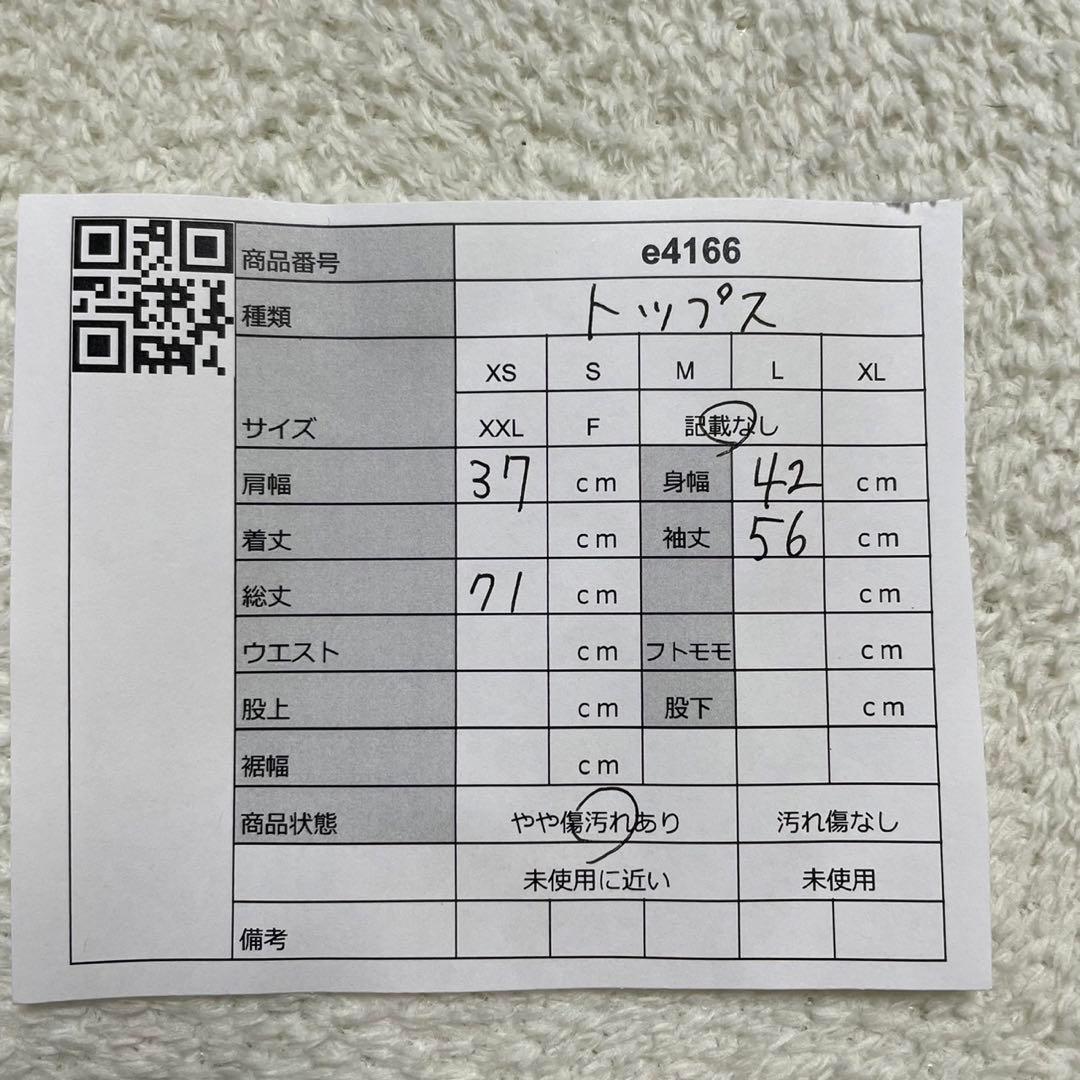 商品番号 e4166
種類 トップス
XS S M L XL
サイズ XXL F 記載なし
肩幅 37 cm 身幅 42 cm
着丈 cm 袖丈 56 cm
総丈 71 cm cm
ウエスト cm フトモモ cm
股上 cm 股下 cm
裾幅 cm
商品状態 やや傷汚れあり 汚れ傷なし
未使用に近い 未使用
備考